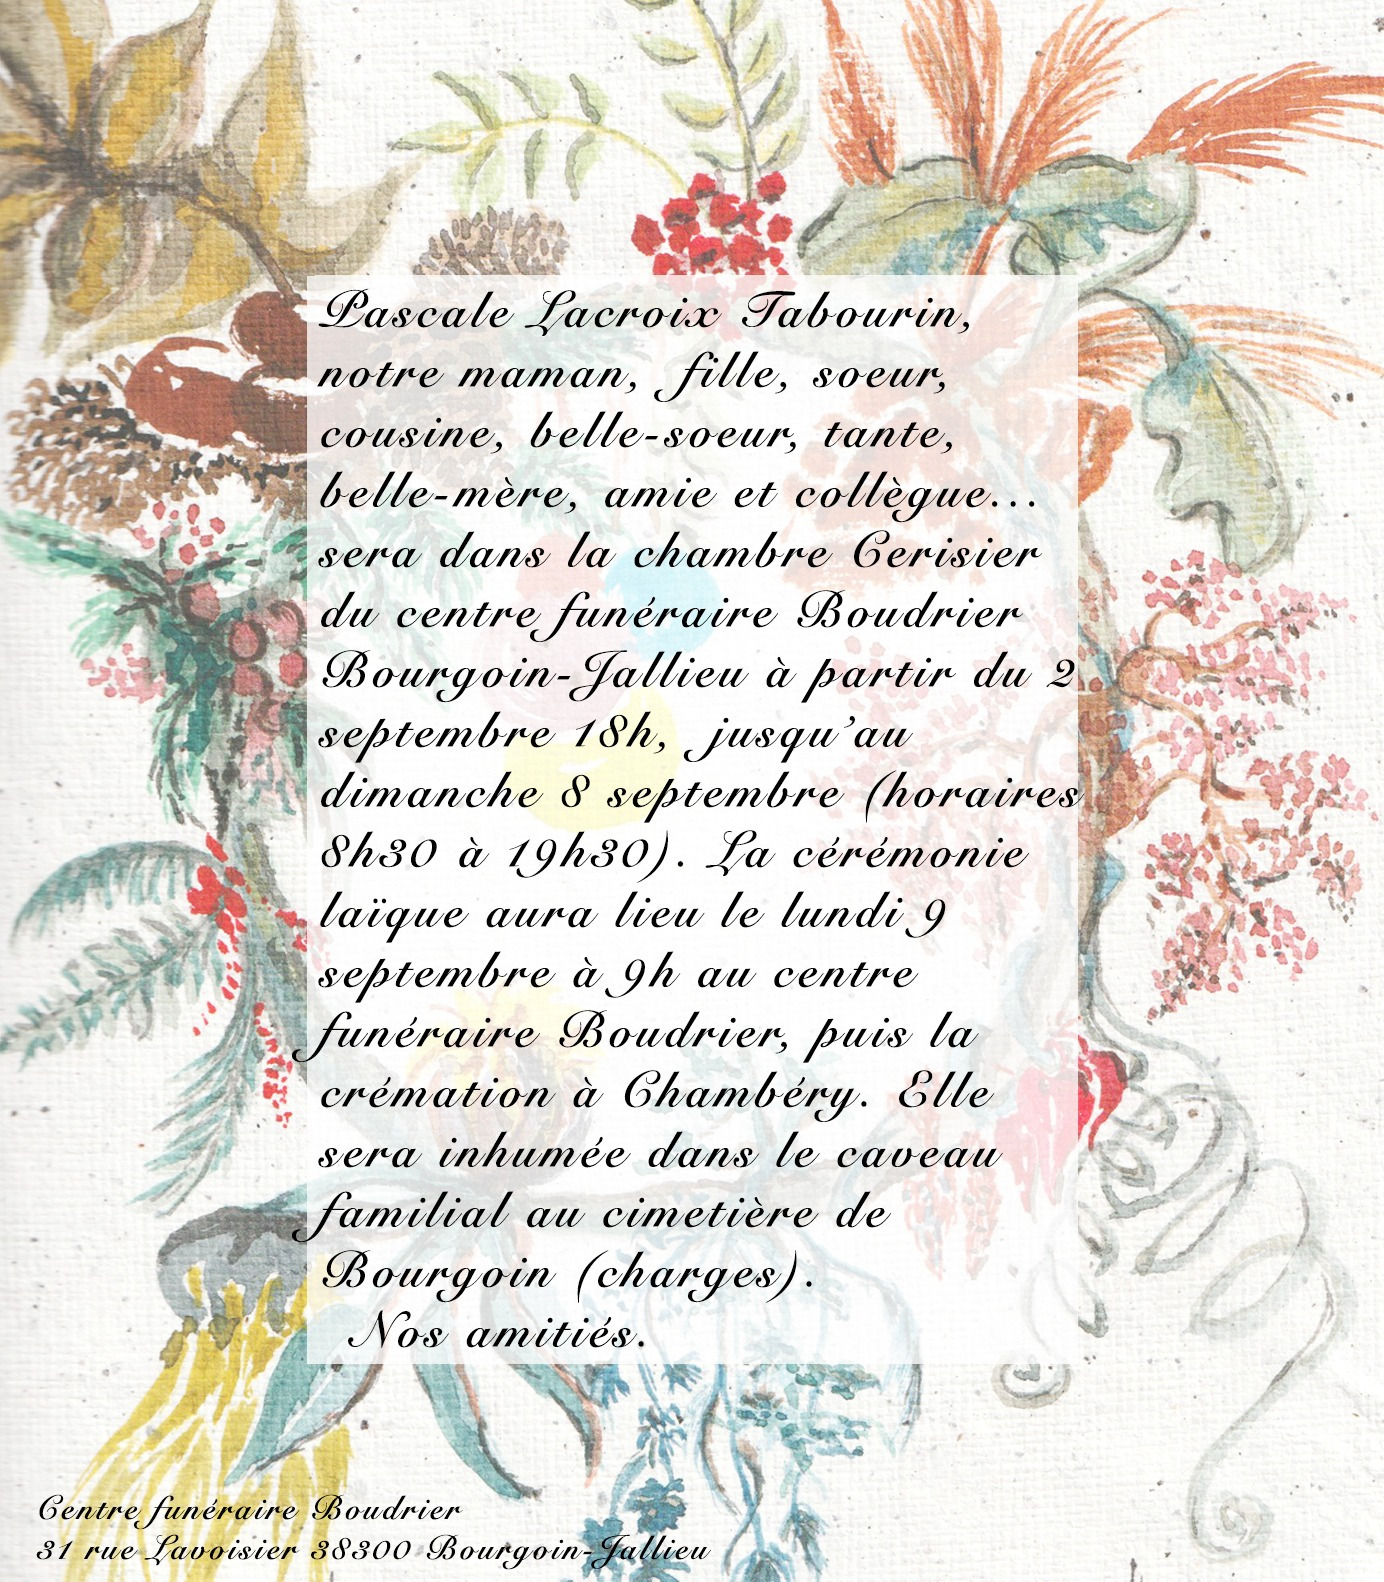 Pascale Lacroix Tabourin,
notre maman, fille, soeur,
cousine, belle-soeur, tante,
belle-mère, amie et collègue...
sera dans la chambre Cerisier
du centre funéraire Boudrier
Bourgoin-Jallieu à partir du 2
septembre 18h, jusqu'au
dimanche 8 septembre (horaires
8h30 à 19h30). La cérémonie
laïque aura lieu le lundi 9
septembre à 9h au centre
funéraire Boudrier, puis la
crémation à Chambéry. Elle
sera inhumée dans le caveau
familial au cimetière de
Bourgoin (charges).
Nos amitiés.
Centre funéraire Boudrier
31 rue Lavoisier 38300 Bourgoin-Jallieu